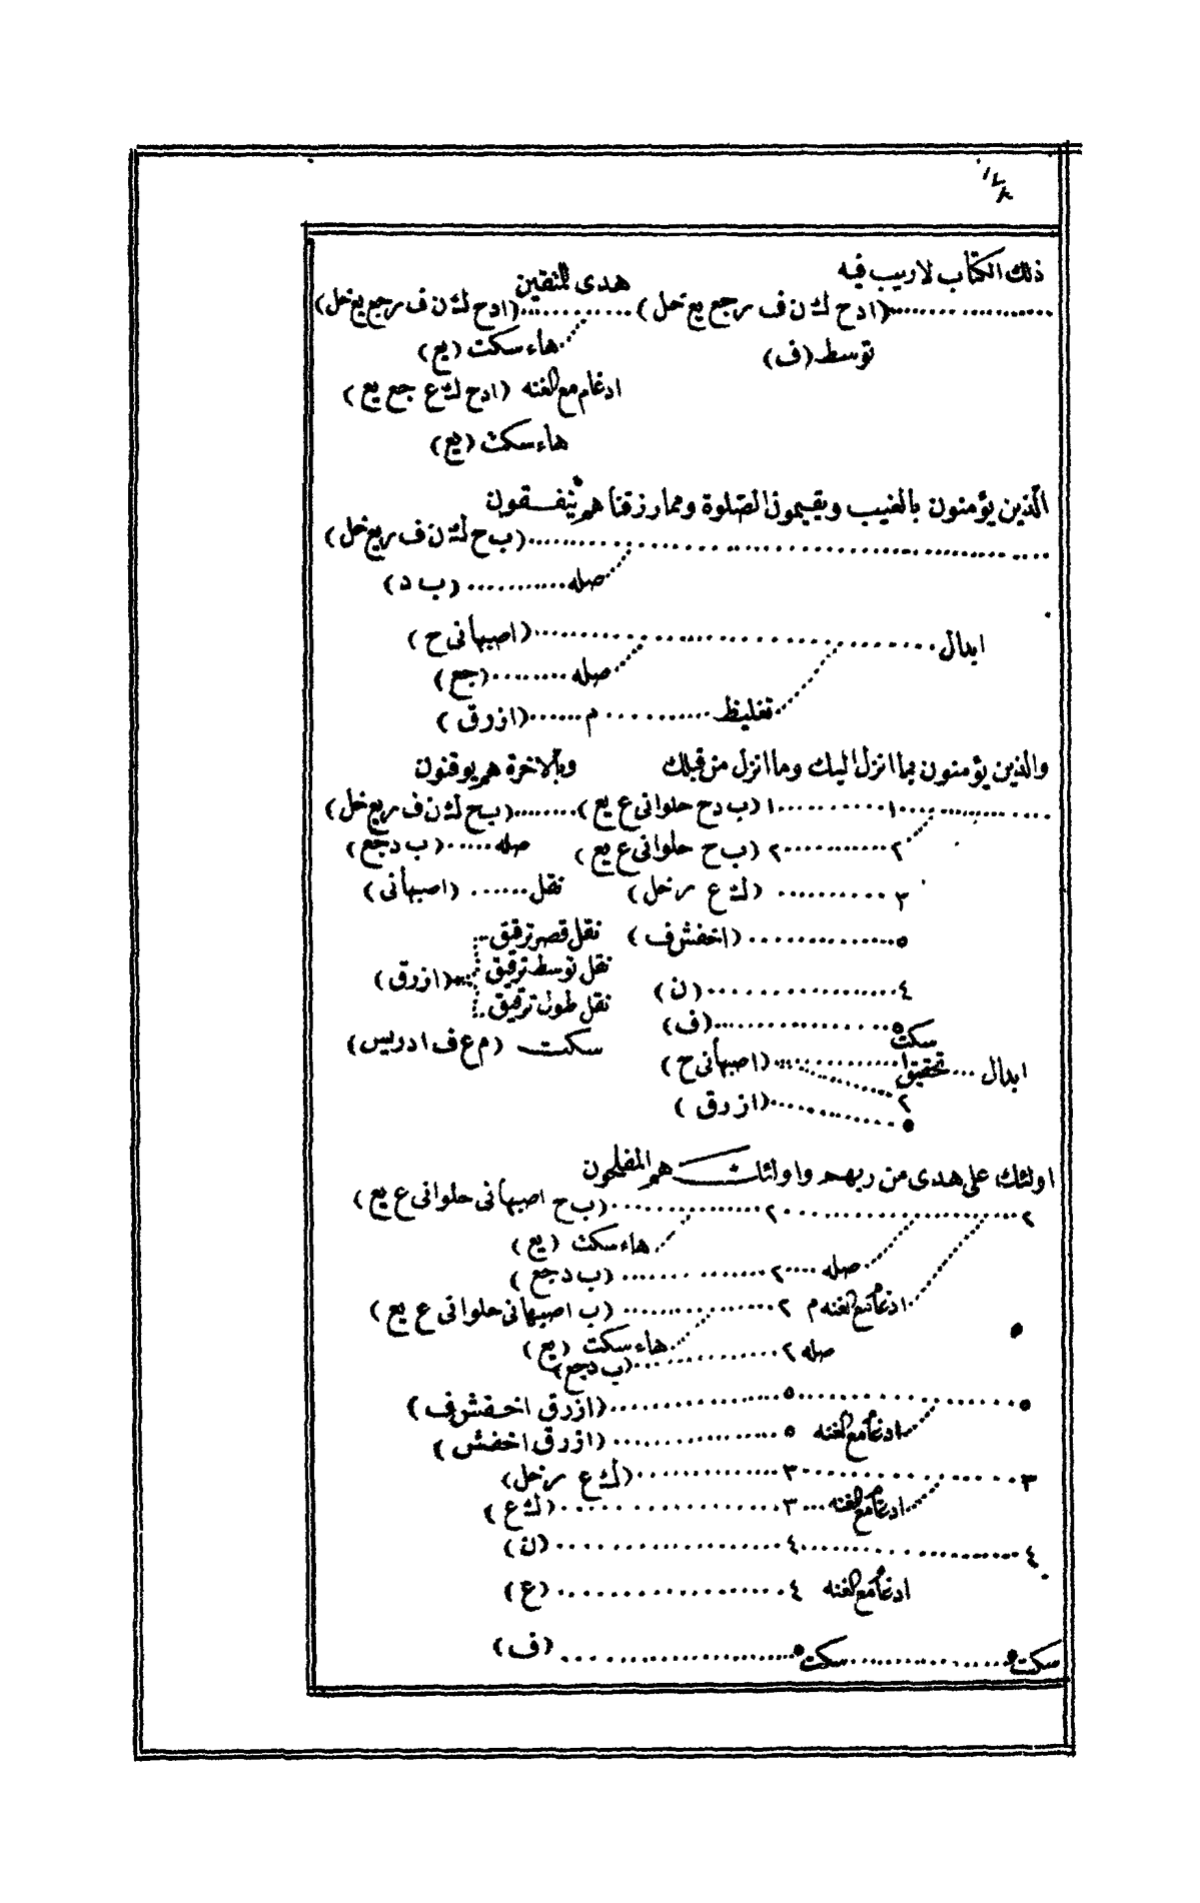 ذلك الكتاب لاريب فيه هدى للمتقين
................ (ادح ك ن ف ر جع يع خل) ............ (ادح ك ن ف ر جع يع خل)
توسط (ف) هاء سكت (يع)
ادغام مع الغنه (ادح ك ع جع يع)
هاء سكت (يع)
الذين يؤمنون بالغيب ويقيمون الصلوة ومما رزقنا هم ينفقون
................ (ب ح ك ن ف ر يع خل)
صله ............ (ب د)
ابدال ................ (اصبهانى ح)
صله ........ (جع)
تغليظ ............ م ...... (ازرق)
والذين يؤمنون بما انزل اليك وما انزل من قبلك وبالاخرة هم يوقنون
............ ١ .......... ١ (ب دح حلوانى ع يع) ........ (ب ح ك ن ف ر يع خل)
٢ .......... ٢ (ب ح حلوانى ع يع) صله ..... (ب د جع)
٣ .......... (ك ع ر خل) نقل ...... (اصبهانى)
٥ .............. (اخفش ف) نقل قصر ترقيق ..
نقل توسط ترقيق .... (ازرق)
٤ ................ (ن) نقل طول ترقيق ..
سكت ٥ .............. (ف) سكت (م ع ف ادريس)
ابدال .... تحقيق ١ .......... (اصبهانى ح)
٢
٥ ............ (ازرق)
اولئك على هدى من ربهم واولئك هم المفلحون
٢ ................ ٢ ............ (ب ح اصبهانى حلوانى ع يع)
هاء سكت (يع)
صله .... ٢ ............ (ب د جع)
ادغام مع الغنه م ٢ ............ (ب اصبهانى حلوانى ع يع)
هاء سكت (يع)
صله ٢ ............ (ب د جع)
٥ ................ ٥ ............ (ازرق اخفش ف)
ادغام مع الغنه ٥ ............ (ازرق اخفش)
٣ ................ ٣ ............ (ك ع ر خل)
ادغام مع الغنه ... ٣ ................ (ك ع)
٤ ................ ٤ ................ (ن)
ادغام مع الغنه ٤ ................ (ع)
سكت ٥ ............ سكت ٥ ................ (ف)